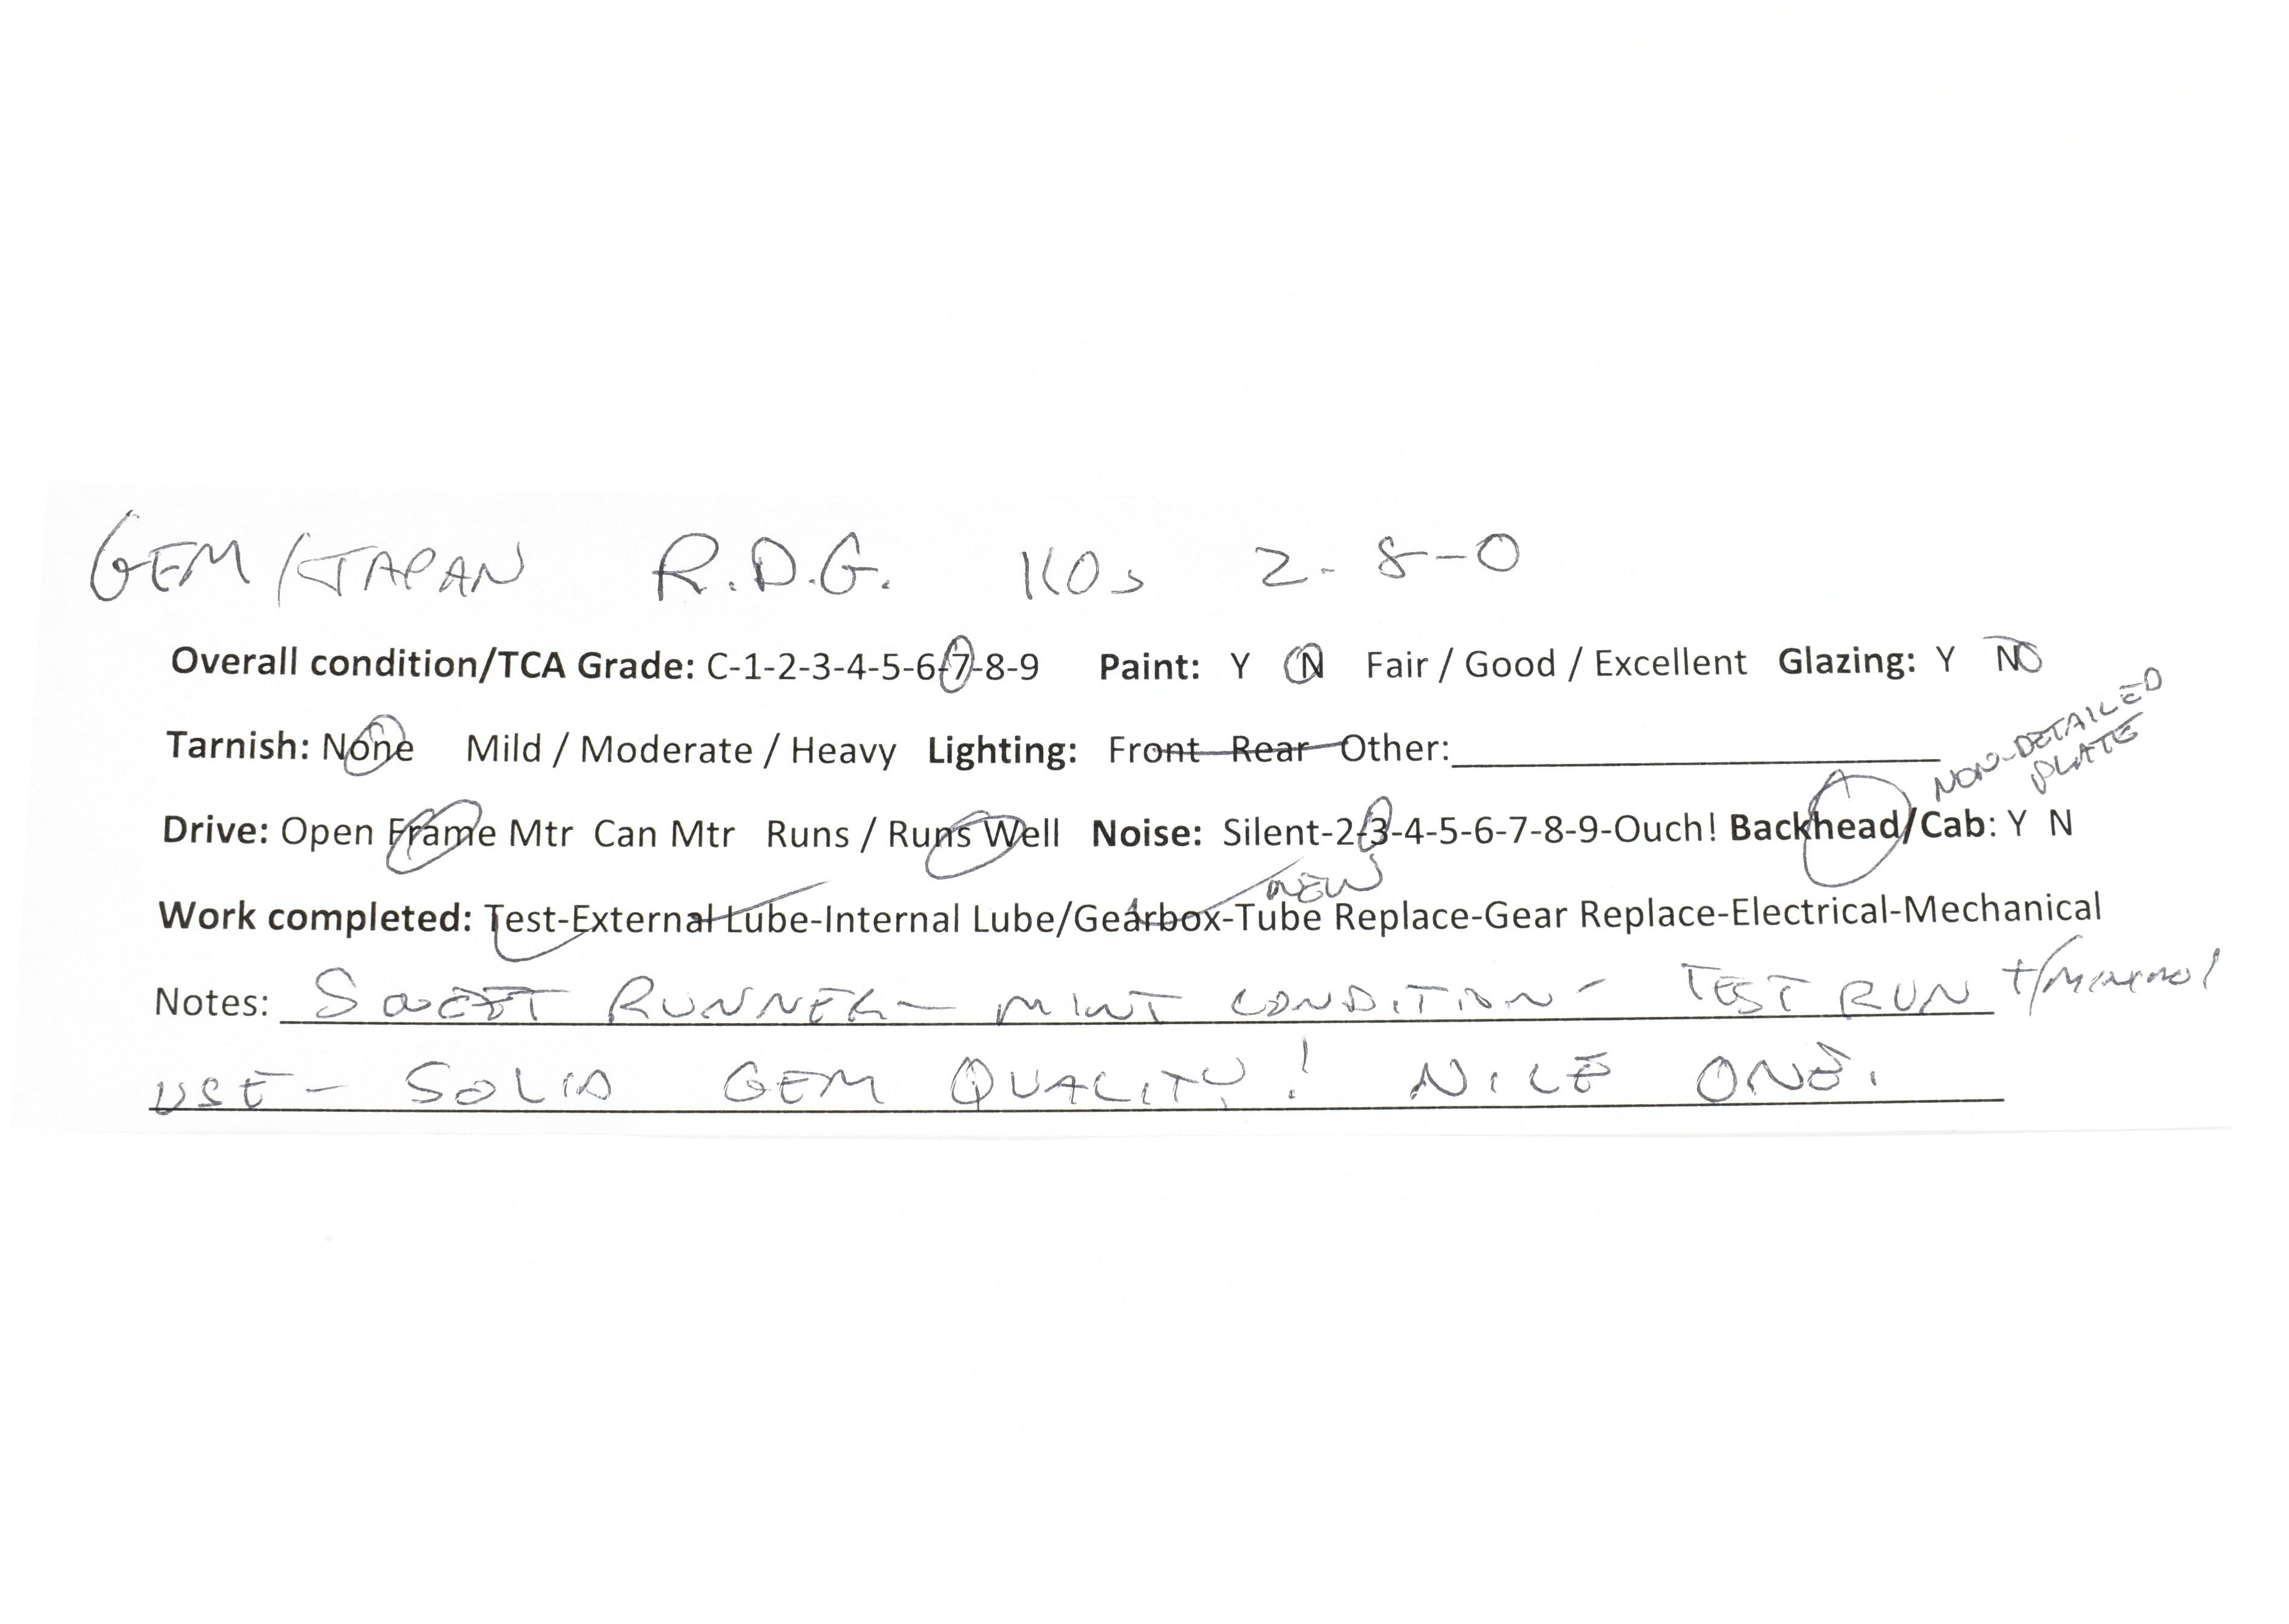 GEM/JAPAN R.D.G. 110s 2-8-0
Overall condition/TCA Grade: C-1-2-3-4-5-6-7-8-9 Paint: Y N Fair / Good / Excellent Glazing: Y NO
Tarnish: None Mild / Moderate / Heavy Lighting: Front Rear Other:
NON-DETAILED
PLATE
Drive: Open Frame Mtr Can Mtr Runs / Runs Well Noise: Silent-2-3-4-5-6-7-8-9-Ouch! Backhead/Cab: Y N
NEW
Work completed: Test-External Lube-Internal Lube/Gearbox-Tube Replace-Gear Replace-Electrical-Mechanical
Notes: SWEET RUNNER - MINT CONDITION - TEST RUN +/minimal
USE - SOLID GEM QUALITY! NICE ONE.